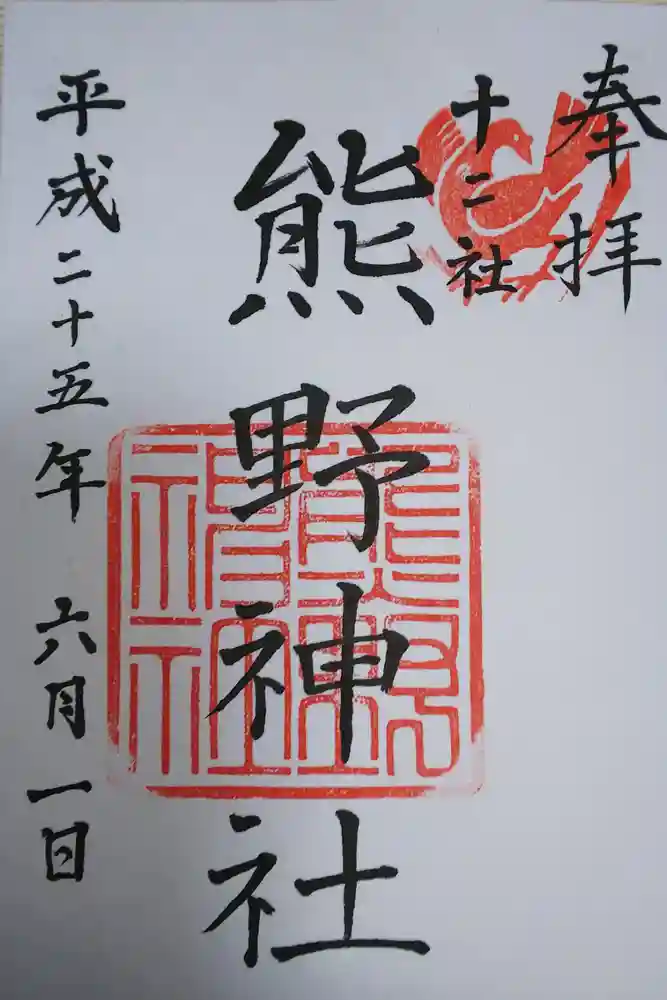 奉拝
十二社
熊野神社
平成二十五年 六月一日